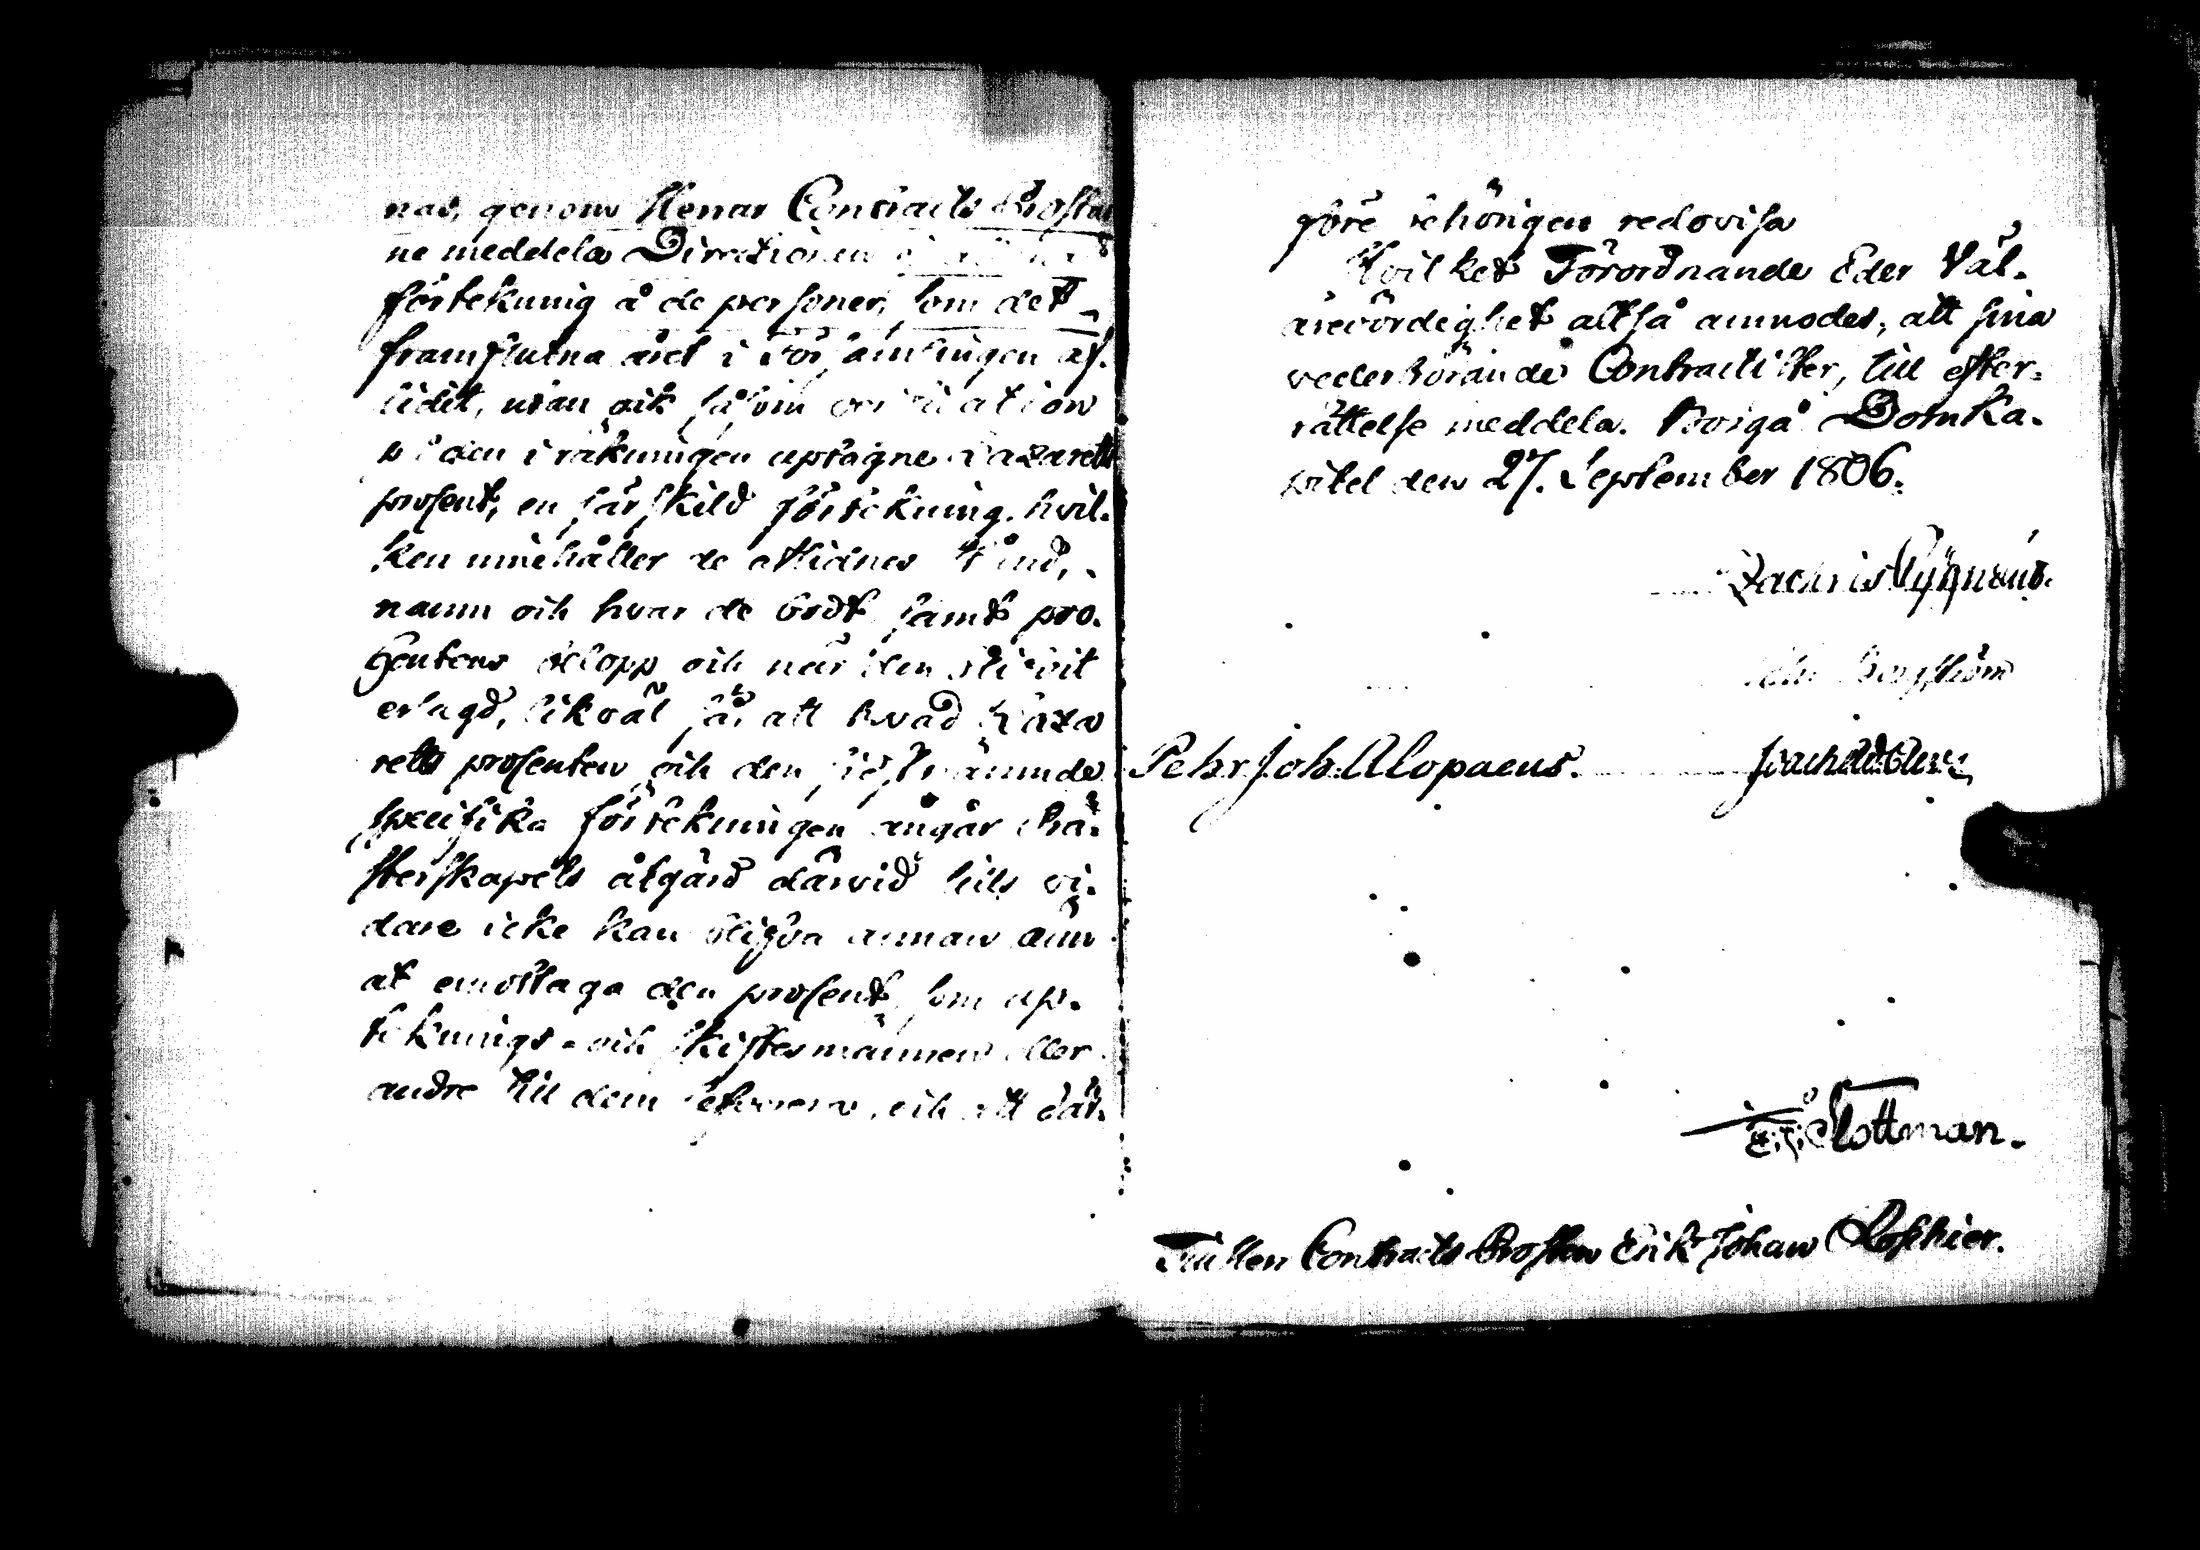 nas, genom Herrar Contracts Prostar
ne meddela Directionen
förtekning å de personer, som det
framflutna året i Församlingen af-
lidit, utan ock såsom verification
på den i räkningen uptagne Lazaretts
prosent, en särskild förtekning, hvil-
ken innehåller de aflidnes stånd,
namn och hvar de bodt samt pro-
centens belopp och när den blifvit
erlagd, likväl så, att hvad Laza
retts prosenten och den sidstnämnde
specifika förtekningen angår Prä-
sterskapets åtgärd därvid tils vi-
dare icke kan blifva annan änn
at emottaga den prosent, som up-
teknings- och skiftesmännen eller
andre til dem leverera, och att där-
före behörigen redovisa
Hvilket Förordnande Eder Väl-
ärevördighet altså anmodes, att sina
vederbörande Contractister, till efter-
rättelse meddela. Borgå Domka-
pitel den 27. September 1806.
Zachris Cygnæus.
Borgström
Pehr Joh. Alopaeus.
Slottman.
Till Herr Contracts Prosten Erik Johan